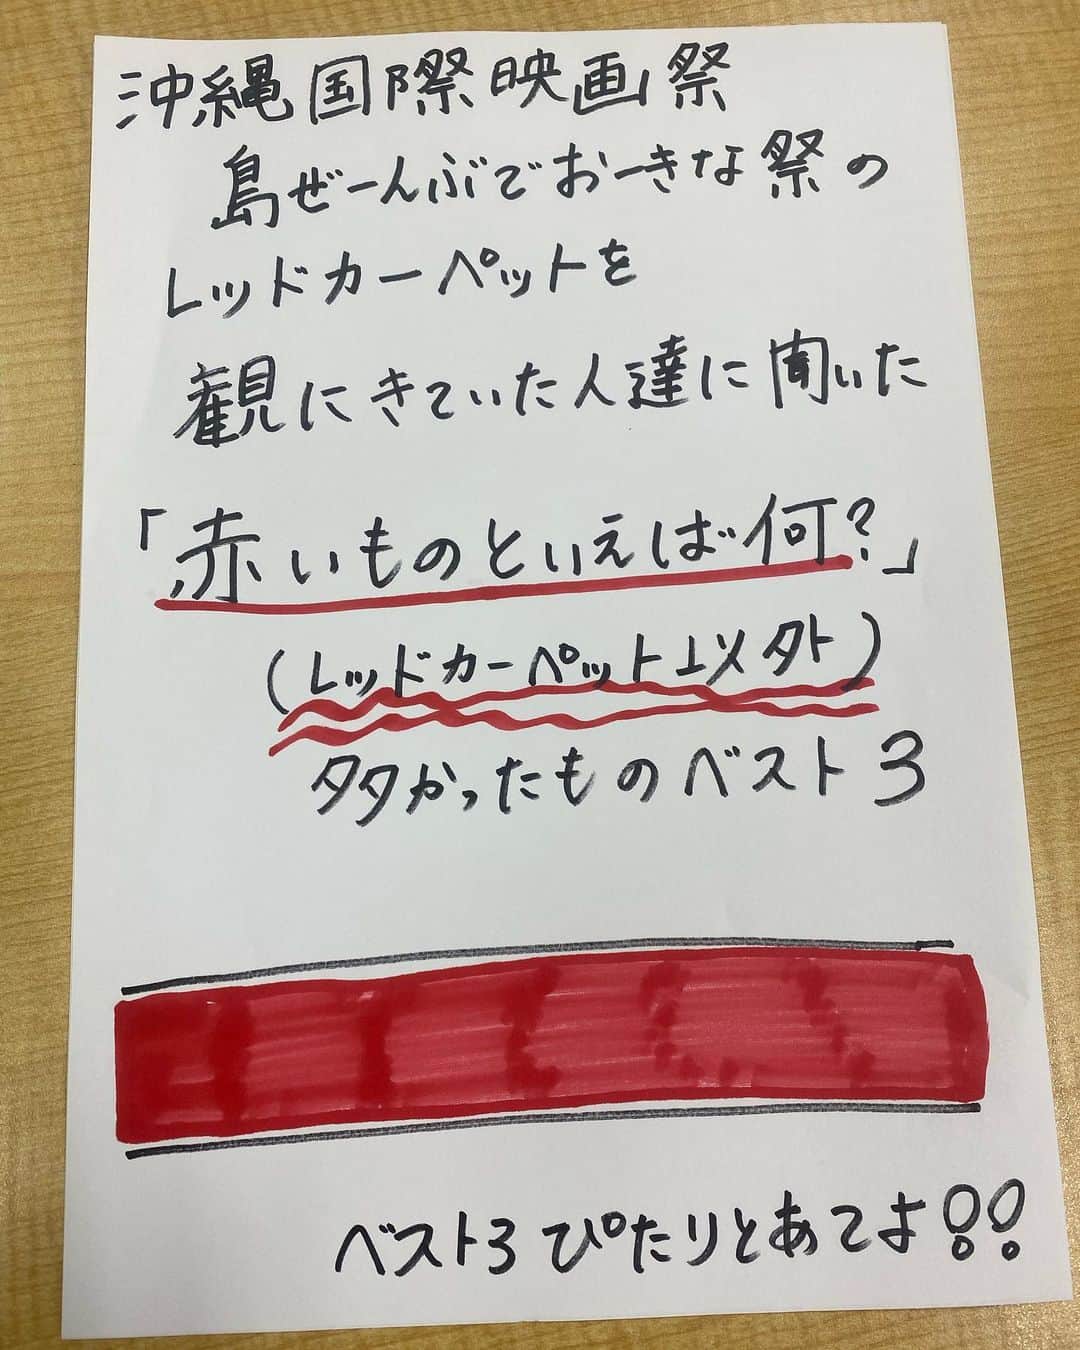 沖縄国際映画祭
島ぜーんぶでおーきな祭の
レッドカーペットを
観にきていた人達に聞いた
「赤いものといえば何?」
(レッドカーペット以外)
多かったものベスト3
ベスト3ぴたりとあてよ!!